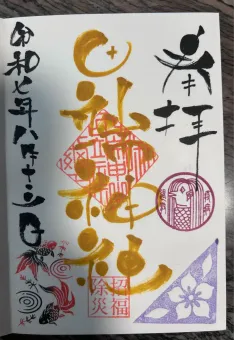 奉拝
七社神社
招福
除災
令和七年八月十三日